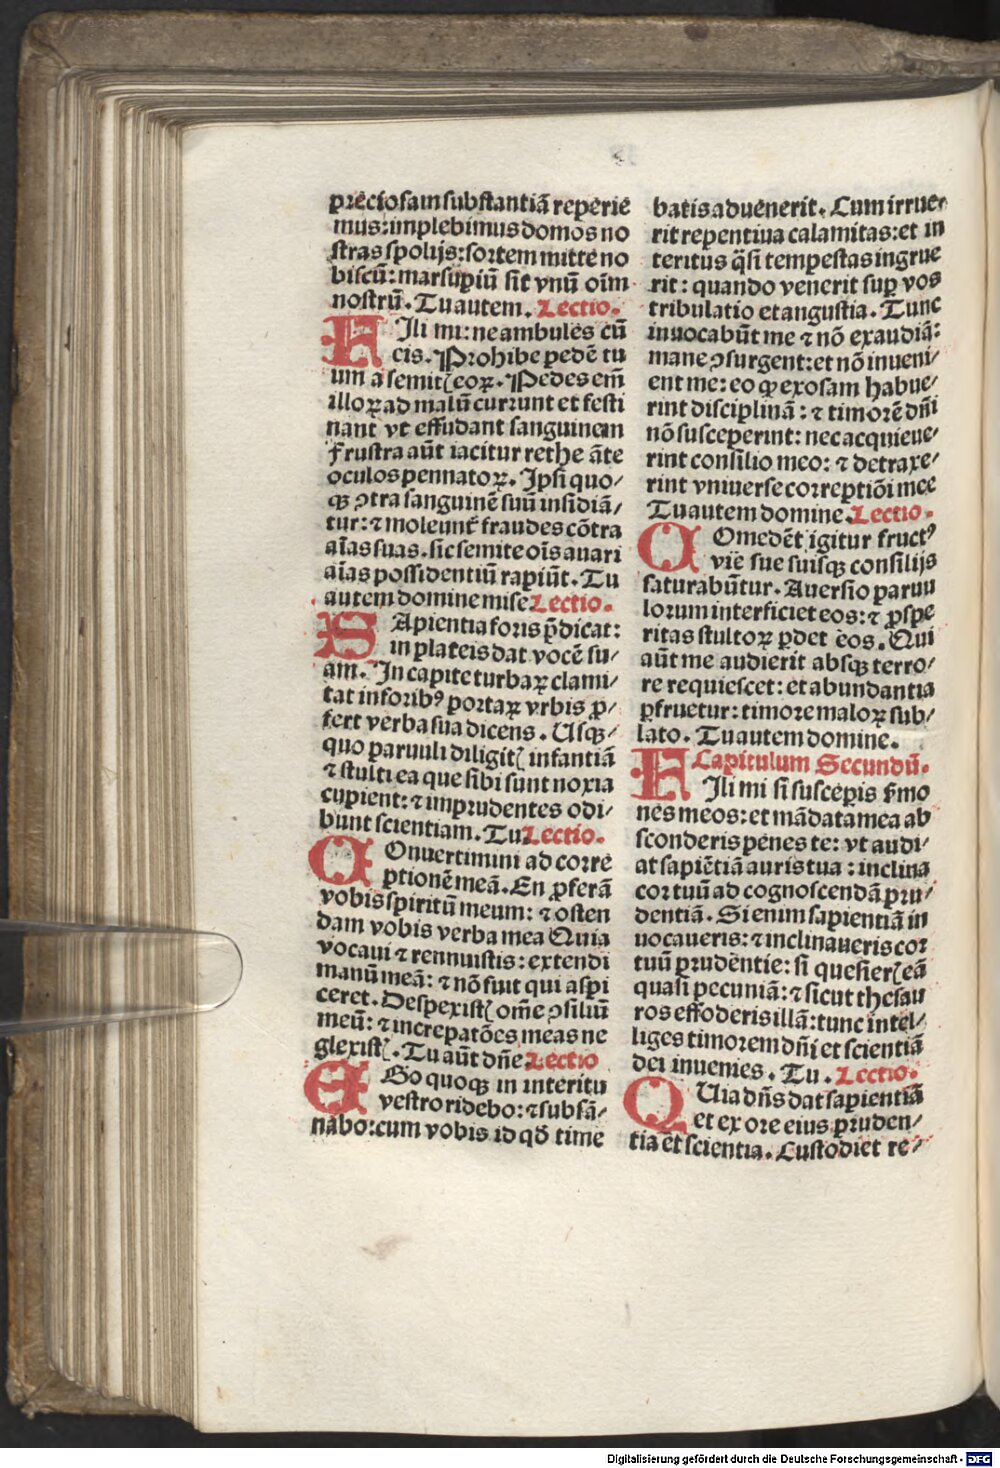 preciosam substantiā reperie
mus: implebimus domos no
stras spolijs: sortem mitte no
biscū: marsupiū sit vnū oīm
nostrū. Tu autem. Lectio.
FIli mi: ne ambules cū
cis. Prohibe pedē tu
um a semitꝭ eoꝝ. Pedes em̄
illoꝝ ad malū currunt et festi
nant vt effudant sanguinem
Frustra aūt iacitur rethe āte
oculos pennatoꝝ. Ipsi quo⸗
qꝫ ꝯtra sanguinē suū insidiā⸗
tur: ⁊ moleunt̄ fraudes cōtra
aīas suas. sic semite oīs auari
aīas possidentiū rapiūt. Tu
autem domine mise Lectio.
SApientia foris p̄dicat:
in plateis dat vocē su⸗
am. In capite turbaꝝ clami⸗
tat in foribꝰ portaꝝ vrbis ꝓ⸗
fert verba sua dicens. Usqꝫ⸗
quo paruuli diligitꝭ infantiā
⁊ stulti ea que sibi sunt noxia
cupient: ⁊ imprudentes odi⸗
bunt scientiam. Tu Lectio.
COnuertimini ad corre
ptionē meā. En ꝓferā
vobis spiritū meum: ⁊ osten
dam vobis verba mea Quia
vocaui ⁊ rennuistis: extendi
manū meā: ⁊ nō fuit qui aspi
ceret. Despexistꝭ om̄e ꝯsiliū
meū: ⁊ increpatōes meas ne
glexistꝭ. Tu aūt dn̄e Lectio
EGo quoqꝫ in interitu
vestro ridebo: ⁊ subsā⸗
nabo: cum vobis id qd̄ time
batis aduenerit. Cum irrue⸗
rit repentiua calamitas: et in
teritus q̄si tempestas ingrue
rit: quando venerit suꝑ vos
tribulatio et angustia. Tunc
inuocabūt me ⁊ nō exaudiā:
mane ꝯsurgent: et nō inueni⸗
ent me: eo ꝙ exosam habue⸗
rint disciplinā: ⁊ timorē dn̄i
nō susceperint: nec acquieue⸗
rint consilio meo: ⁊ detraxe⸗
rint vniuerse correptiōi mee
Tu autem domine. Lectio.
COmedēt igitur fructꝰ
vie sue suisqꝫ consilijs
saturabūtur. Auersio paruu
lorum interficiet eos: ⁊ ꝓspe
ritas stultoꝝ ꝑdet eos. Qui
aūt me audierit absqꝫ terro⸗
re requiescet: et abundantia
ꝑfruetur: timore maloꝝ sub⸗
lato. Tu autem domine.
Capitulum Secundū.
FIli mi si susceperis s̄mo
nes meos: et mādata mea ab
sconderis penes te: vt audi⸗
at sapiētiā auris tua: inclina
cor tuū ad cognoscendā pru⸗
dentiā. Si enim sapientiā in
uocaueris: ⁊ inclinaueris cor
tuū prudētie: si quesierꝭ eā
quasi pecuniā: ⁊ sicut thesau
ros effoderis illā: tunc intel⸗
liges timorem dn̄i et scientiā
dei inuenies. Tu. Lectio.
QUia dn̄s dat sapientiā
et ex ore eius pruden⸗
tia et scientia. Custodiet re⸗
Digitalisierung gefördert durch die Deutsche Forschungsgemeinschaft - DFG